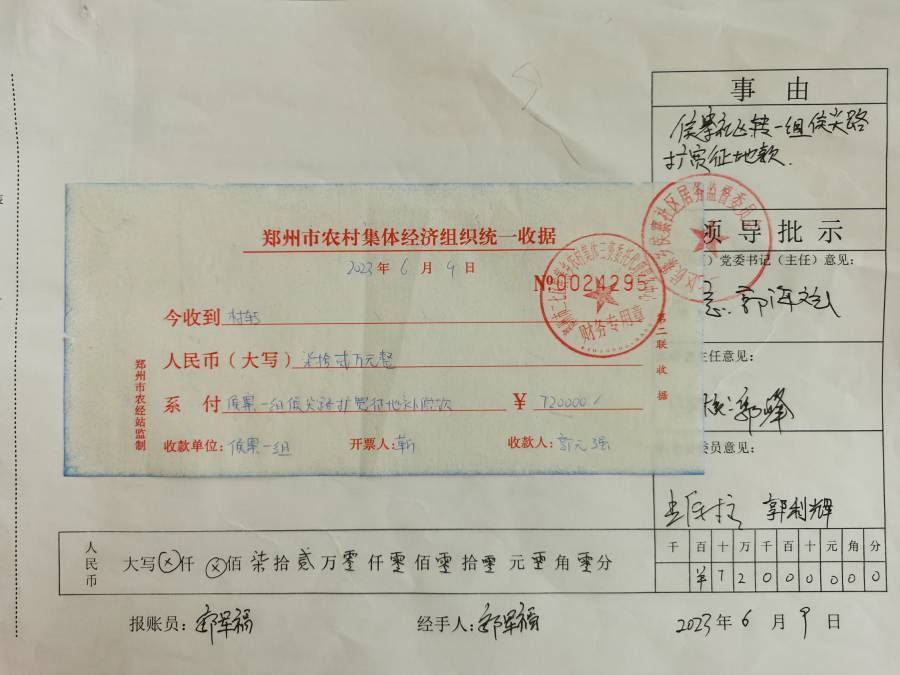 事由
侯寨社区转一组侯尖路
扩宽征地款.
领导批示
郑州市农村集体经济组织统一收据
2023年6月9日
№0024295
今收到 村转
人民币（大写） 柒拾贰万元整
系付 侯寨一组侯尖路扩宽征地补偿款 ¥ 720000/
收款单位: 侯寨一组 开票人: 靳 收款人: 郭元强
郑州市农经站监制
第二联收据
财务专用章
侯寨社区居务监督委员
党委书记（主任）意见：
主任意见：
郭峰
委员意见：
郭利辉
人民币
大写ⓧ仟ⓧ佰柒拾贰万零仟零佰零拾零元零角零分
千百十万千百十元角分
¥72000000
报账员：郭军福
经手人：郭军福
2023年6月9日